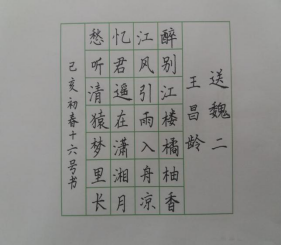 送魏二
王昌龄
醉别江楼橘柚香
江风引雨入舟凉
忆君遥在潇湘月
愁听清猿梦里长
己亥初春十六号书